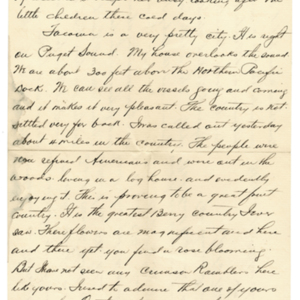 little children these cold days.
Tacoma is a very pretty city. It is right
on Puget Sound. My house overlooks the sound
We are about 300 feet above the Northern Pacific
Dock. We can see all the vessels going and coming
and it makes it very pleasant. The country is not
settled very far back. I was called out yesterday
about 10 miles in the country. The people were
non refined Americans and were out in the
woods living in a log house and evidently
enjoying it. This is proving to be a great fruit
country. It is the greatest Berry country I ever
saw. The flowers are magnificent and here
and there yet you find a rose blooming.
But I has not seen any Crimson Ramblers here
like yours. I used to admire that one of yours